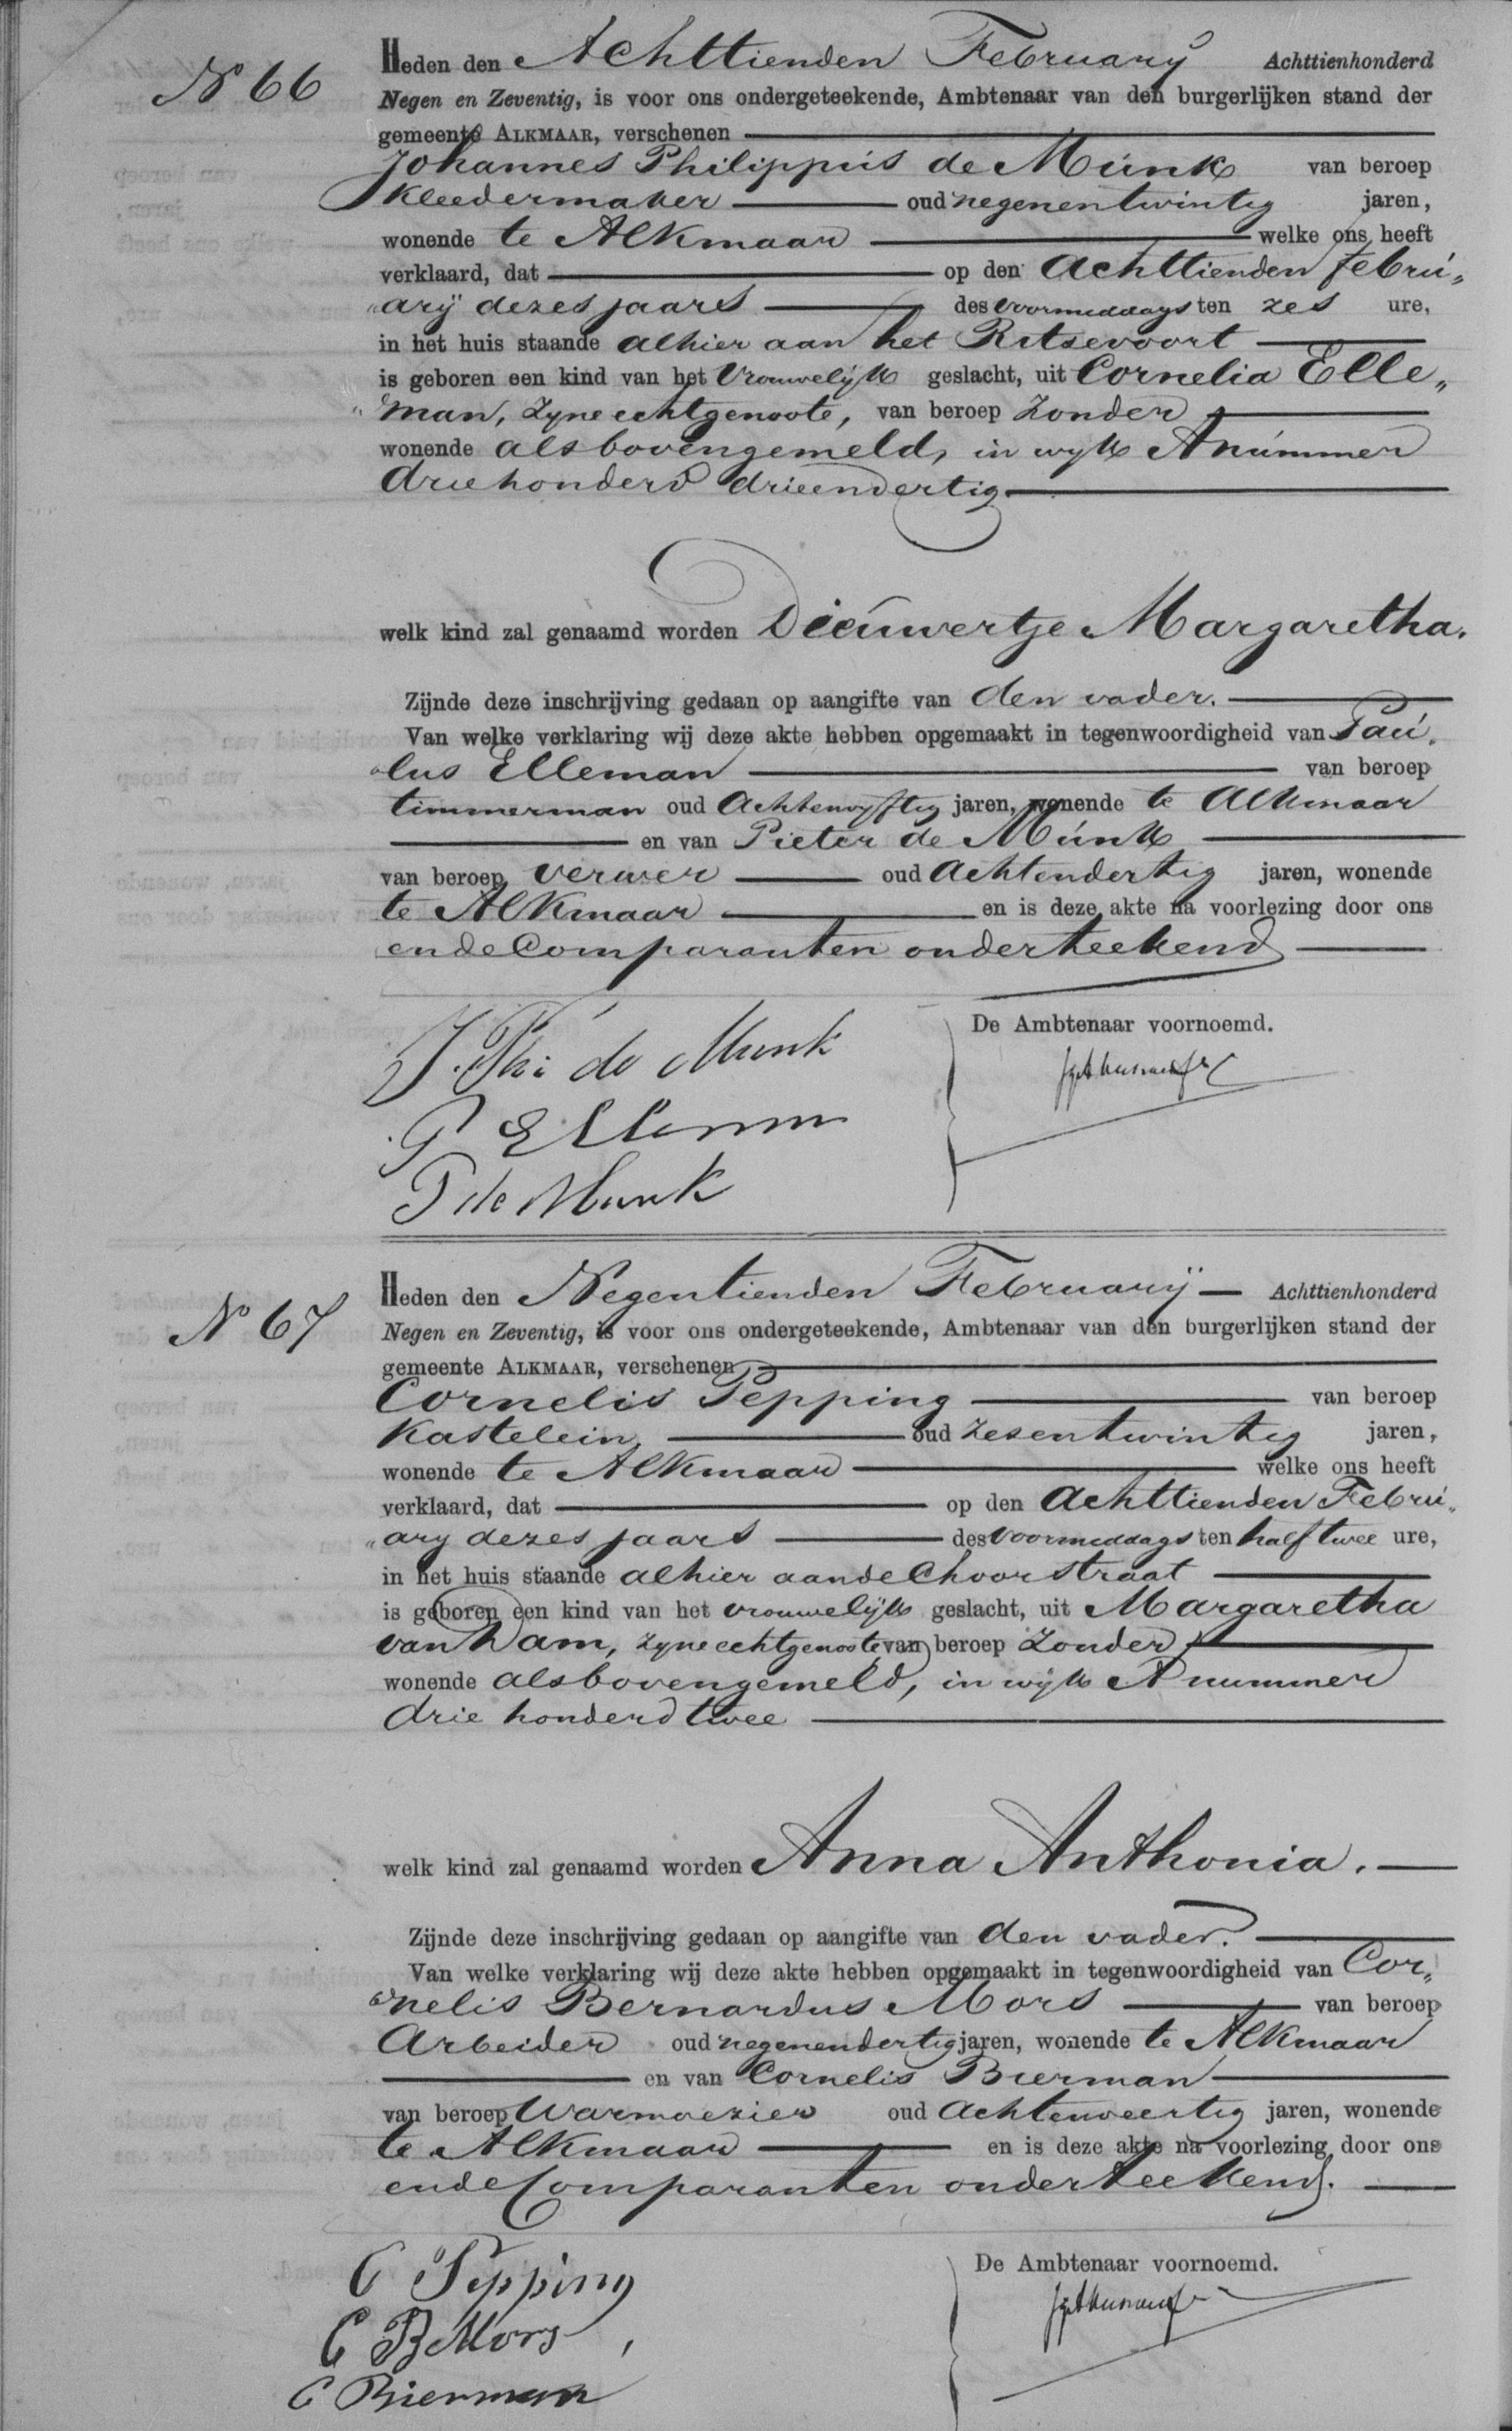 N 66
Heden den Achttienden February Achttienhonderd
Negen en Zeventig, is voor ons ondergeteekende, Ambtenaar van den burgerlijken stand der
gemeente ALKMAAR, verschenen
Johannes Philippus de Munk van beroep
kleedermaker oud negenentwintig jaren,
wonende te Alkmaar welke ons heeft
verklaard, dat op den Achttienden febru„
„arij dezes jaars des voormiddags ten zes ure,
in het huis staande alhier aan het Ritsevoort
is geboren een kind van het Vrouwelijk geslacht, uit Cornelia Elle„
„man, zyne echtgenoote, van beroep Zonder
wonende als bovengemeld, in wyk A nummer
driehonderd drieendertig
welk kind zal genaamd worden Dieuwertje Margaretha.
Zijnde deze inschrijving gedaan op aangifte van den vader.
Van welke verklaring wij deze akte hebben opgemaakt in tegenwoordigheid van Pau„
„lus Elleman van beroep
timmerman oud Achtenvyftig jaren, wonende te Alkmaar
en van Pieter de Munk
van beroep verwer oud Achtendertig jaren, wonende
te Alkmaar en is deze akte na voorlezing door ons
en de Comparanten onderteekend
De Ambtenaar voornoemd.
J. Phi de Munk
P Elleman
P de Munk
N 67
Heden den Negentienden Februarÿ Achttienhonderd
Negen en Zeventig, is voor ons ondergeteekende, Ambtenaar van den burgerlijken stand der
gemeente ALKMAAR, verschenen
Cornelis Pepping van beroep
Kastelein, oud zesentwintig jaren,
wonende te Alkmaar welke ons heeft
verklaard, dat op den Achttienden Febru„
„ary dezes jaars des voormiddags ten half twee ure,
in het huis staande alhier aan de Choorstraat
is geboren een kind van het vrouwelijk geslacht, uit Margaretha
van Dam, zyne echtgenoote, van beroep Zonder
wonende als bovengemeld, in wijk A nummer
drie honderd twee
welk kind zal genaamd worden Anna Anthonia.
Zijnde deze inschrijving gedaan op aangifte van den vader.
Van welke verklaring wij deze akte hebben opgemaakt in tegenwoordigheid van Cor„
„nelis Bernardus Mors van beroep
Arbeider oud negenendertig jaren, wonende te Alkmaar
en van Cornelis Bierman
van beroep Warmoezier oud Achtenveertig jaren, wonende
te Alkmaar en is deze akte na voorlezing door ons
en de Comparanten onderteekend.
De Ambtenaar voornoemd.
C Pepping
C B Mors
C Bierman